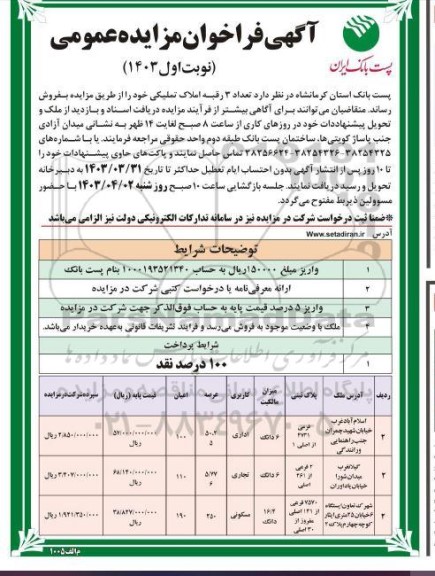 آگهی فراخوان مزایده عمومی
(نوبت اول ۱۴۰۳)
پست بانک ایران
پست بانک استان کرمانشاه در نظر دارد تعداد ۳ رقبه املاک تملیکی خود را از طریق مزایده بفروش
رساند. متقاضیان می‌توانند برای آگاهی بیشتر از فرآیند مزایده دریافت اسناد و بازدید از ملک و
تحویل پیشنهادات خود در روزهای کاری از ساعت ۸ صبح لغایت ۱۴ ظهر به نشانی میدان آزادی
جنب پاساژ کویتی‌ها، ساختمان پست بانک طبقه دوم واحد حقوقی مراجعه فرمایند. یا با شماره‌های
۳۸۲۵۴۳۲۵-۳۸۲۵۴۳۴۶-۳۸۲۵۶۶۳۴ تماس حاصل نمایند و پاکت‌های حاوی پیشنهادات خود را
تا ۱۰ روز پس از انتشار آگهی بدون احتساب ایام تعطیل حداکثر تا تاریخ ۱۴۰۳/۰۳/۳۱ به دبیرخانه
تحویل و رسید دریافت نمایند. جلسه بازگشایی ساعت ۱۰ صبح روز شنبه ۱۴۰۳/۰۴/۰۲ با حضور
مسوولین ذیربط مفتوح می‌گردد.
*ضمنا ثبت درخواست شرکت در مزایده نیز در سامانه تدارکات الکترونیکی دولت نیز الزامی می‌باشد
آدرس Www.setadiran.ir
توضیحات شرایط
۱ واریز مبلغ ۱۵۰۰۰۰۰ ریال به حساب ۱۰۰۰۱۹۳۵۲۱۳۴۰ بنام پست بانک
۲ ارائه معرفی‌نامه یا درخواست کتبی شرکت در مزایده
۳ واریز ۵ درصد قیمت پایه به حساب فوق‌الذکر جهت شرکت در مزایده
۴ ملک با وضعیت موجود به فروش می‌رسد و فرایند تشریفات قانونی به عهده خریدار می‌باشد.
شرایط پرداخت
۱ ۱۰۰ درصد نقد
ردیف آدرس ملک پلاک ثبتی میزان مالکیت کاربری عرصه اعیان قیمت پایه (ریال) سپرده شرکت در مزایده
اسلام‌آباد غرب خیابان شهید چمران جنب راهنمایی و رانندگی ۶ دانگ اداری ۱۰۰ ۵۷/۰۰۰/۰۰۰/۰۰۰ ریال ۲/۸۵۰/۰۰۰/۰۰۰ ریال
گیلانغرب میدان شورا خیابان پاداوران ۲ فرعی از ۲۶۱ اصلی ۶ دانگ تجاری ۶۸/۱۴۰/۰۰۰/۰۰۰ ریال ۳/۴۰۷/۰۰۰/۰۰۰ ریال
۷۵۷۰ فرعی از ۱۴۱ اصلی مفروز از ۳۰ اصلی دانگ مسکونی ۲۵۰ ۱۹۰ ریال ریال
م‌الف ۱۰۰۵